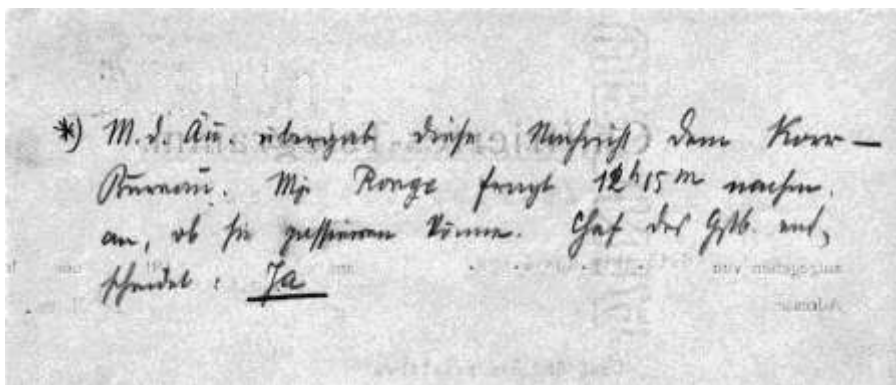 *) M. d. Äu. übergab diese Nachricht dem Korr—
Bureau. Mjr Ronge fragt 12h15m nachm.
an, ob sie passieren könne. Chef des Gstb. ent,
scheidet: Ja